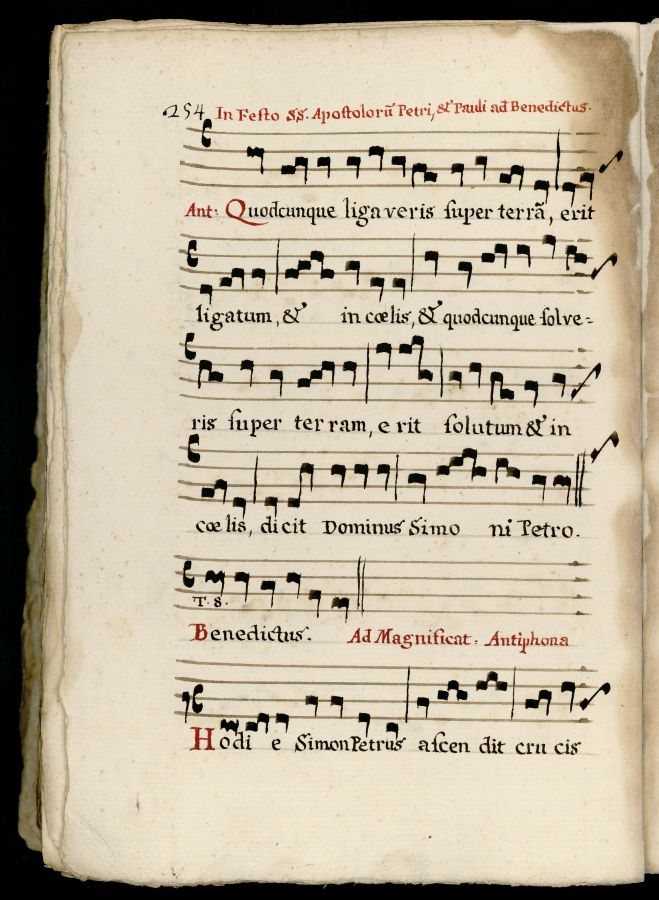 254 In Festo SS. Apostolorũ Petri, & Pauli ad Benedictus.
Ant: Quodcunque ligaveris super terrã, erit
ligatum, & in cœlis, & quodcunque solve=
ris super terram, erit solutum & in
cœlis, dicit Dominus Simoni Petro.
T. 8.
Benedictus. Ad Magnificat: Antiphona
Hodie Simon Petrus ascendit crucis